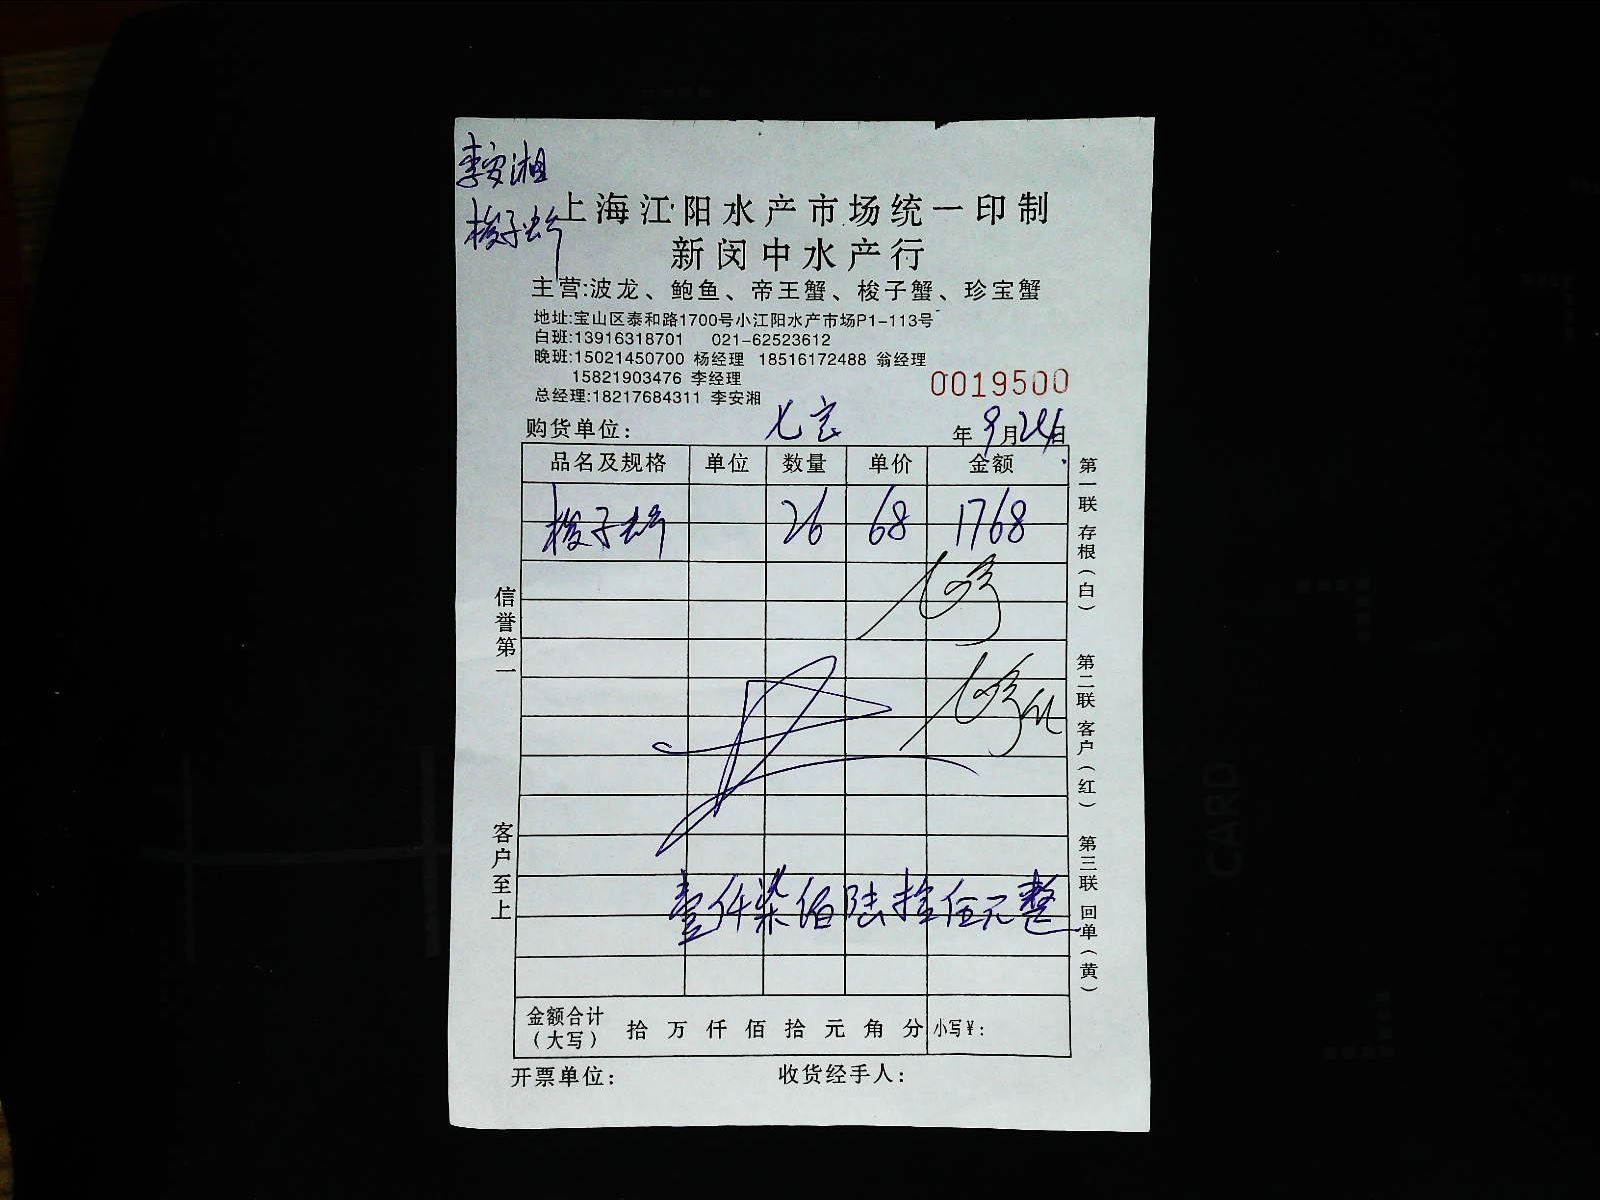 李安湘
梭子蟹
上海江阳水产市场统一印制
新闵中水产行
主营:波龙、鲍鱼、帝王蟹、梭子蟹、珍宝蟹
地址:宝山区泰和路1700号小江阳水产市场P1-113号
白班:13916318701 021-62523612
晚班:15021450700 杨经理 18516172488 翁经理
15821903476 李经理
总经理:18217684311 李安湘
0019500
购货单位: 七宝 年 9月24日
品名及规格 单位 数量 单价 金额
梭子蟹 26 68 1768
壹仟柒佰陆拾 元整
金额合计(大写) 拾 万 仟 佰 拾 元 角 分 小写¥:
开票单位: 收货经手人:
信誉第一
客户至上
第一联 存根(白)
第二联 客户(红)
第三联 回单(黄)
CARD